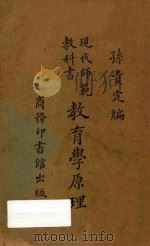 孫貴定編
現代師範
教科書
教育學原理
商務印書館出版